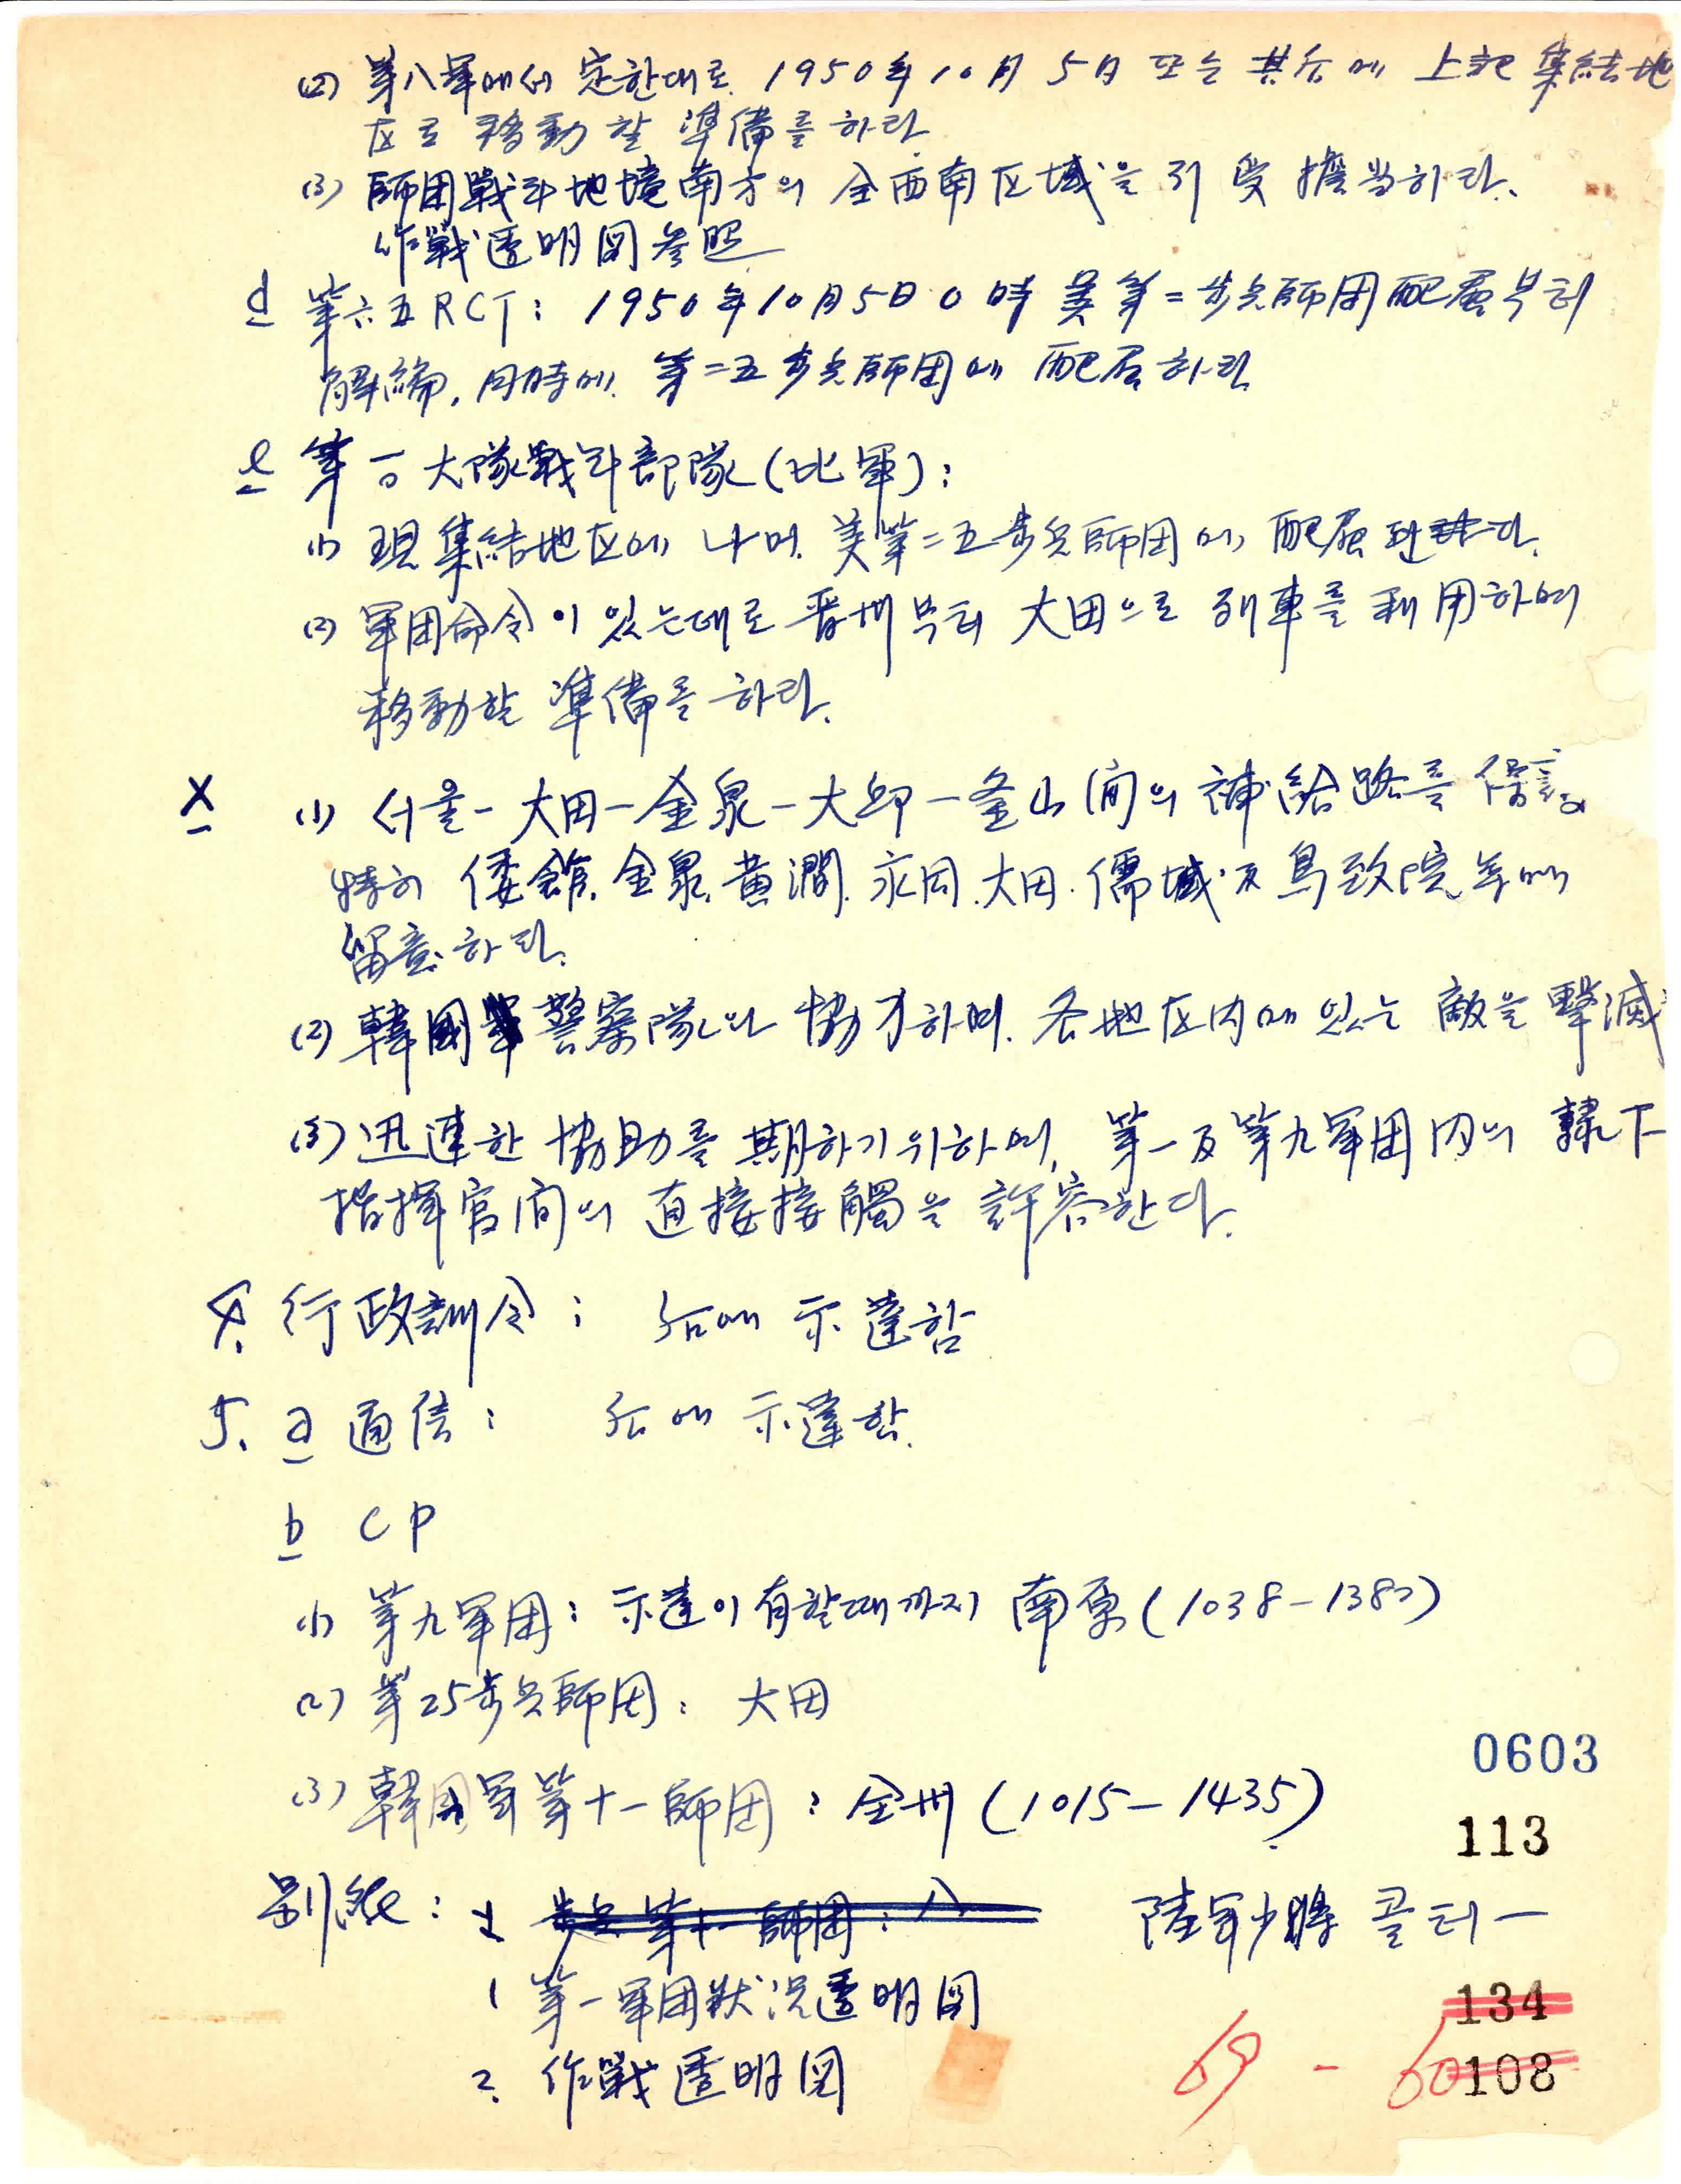 (2) 第八軍에서 定한대로 1950年 10月 5日 또는 其后에 上記 集結地
区로 移動할 準備를 하라.
(3) 師団戰斗地境南方의 全西南区域을 引受 擔当하라.
作戰透明図参照
d 第六五 RCT : 1950年10月5日 0時 美第二步兵師団配属부터
解編, 同時에 第二五步兵師団에 配属하라
e 第一〇大隊戰斗部隊(比軍):
(1) 現集結地区에 나며 美第二五步兵師団에 配属된다.
(2) 軍団命令이 있는대로 晋州부터 大田으로 列車를 利用하여
移動할 準備를 하라.
X (1) 서울-大田-金泉-大邱-釜山 间의 補給路를 保護
特히 倭館, 金泉, 黃澗, 永同, 大田, 儒城 及 鳥致院 等에
留意하라.
(2) 韓國 警察隊와 協力하여 各地区内에 있는 敵을 擊滅
(3) 迅速한 協助를 期하기 위하여, 第一及第九軍団内의 隷下
指揮官间의 直接接觸을 許容한다.
4. 行政訓令 : 后에 示達함
5. a 通信 : 后에 示達함.
b CP
(1) 第九軍団 : 示達이 有할때까지 南原 (1038-1383)
(2) 第25步兵師団 : 大田
(3) 韓国軍第十一師団 : 全州 (1015-1435)
別紙 : 1 步兵第十一師団 : 陸軍少將 콜터ー
1 第一軍団狀況透明図
2. 作戰透明図
0603
113
134
69 - 60
108